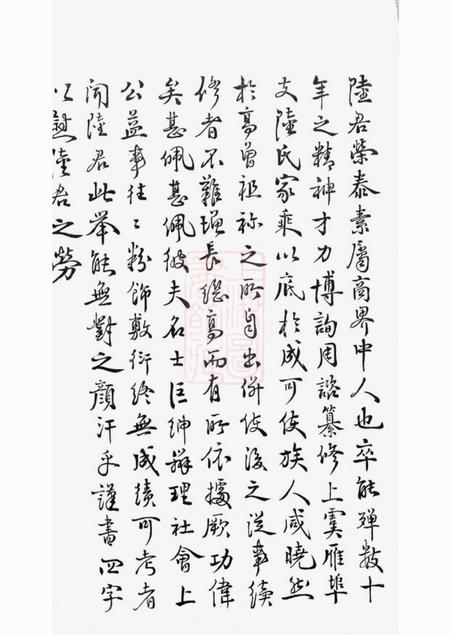 陸君榮泰素屬商界中人也卒能殫數十
年之精神才力博詢周諮纂修上虞雁埠
支陸氏家乘以底於成可使族人咸曉然
於高曾祖祢之所自出併使後之從事續
修者不難增長繼高而有所依據厥功偉
矣甚佩甚佩彼夫名士巨紳辦理社會上
公益事往往粉飾敷衍終無成績可考者
聞陸君此舉能無對之顏汗乎謹書四字
以慰陸君之勞